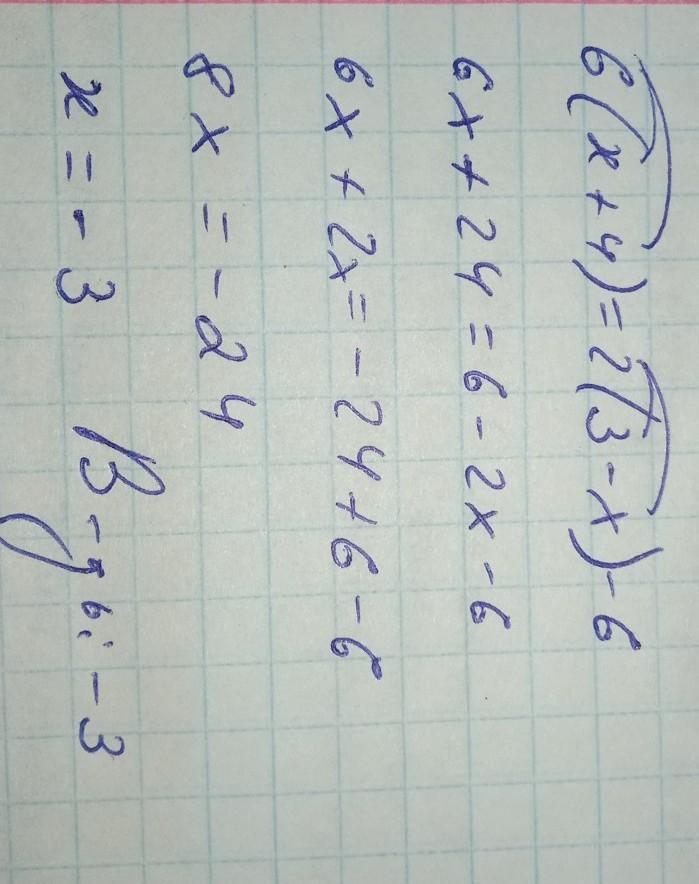 6(x+4)=2(3-x)-6
6x+24=6-2x-6
6x+2x=-24+6-6
8x=-24
x=-3 В-дь:-3